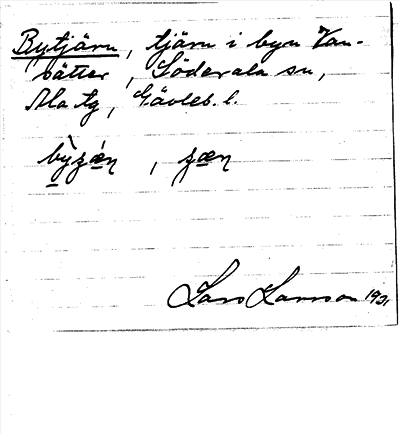 Bytjärn, tjärn i byn Van-
sätter, Söderala sn,
Ala tg, Gävleb. l.
Lars Larsson 1931